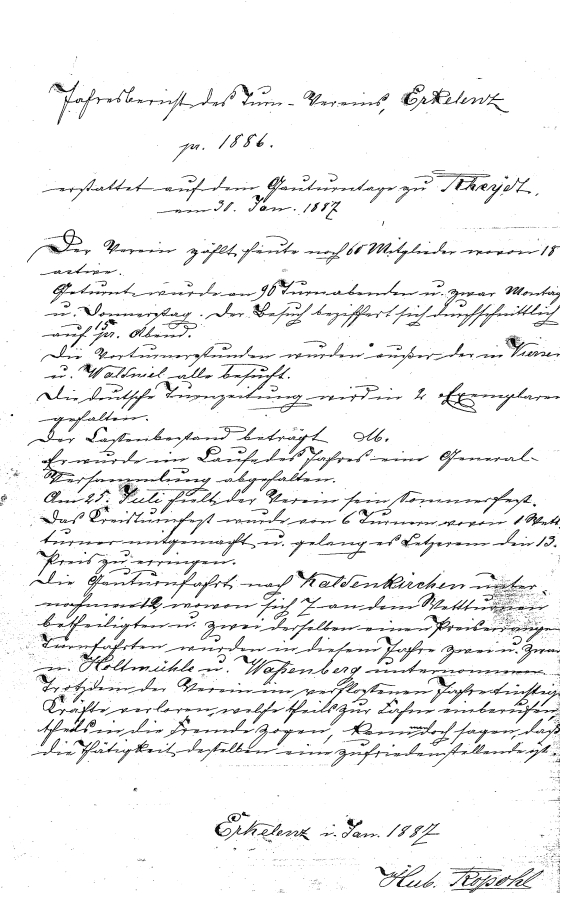 Jahresbericht des Turn-Vereins, Erkelenz
pr. 1886.
erstattet auf dem Gauturntage zu Rheydt,
am 30. Jan. 1887
Der Verein zählt heute noch 60 Mitglieder wovon 18
active.
Geturnt wurde an 90 Turnabenden u. zwar Montag
u. Donnerstag. Der Besuch beziffert sich durchschnittlich
auf 15 pr. Abend.
Die Vorturnerstunden wurden außer der in Viersen
u. Waldniel alle besucht.
Die deutsche Turnzeitung wird in 2 Exemplaren
gehalten.
Der Cassenbestand beträgt M.
Es wurde im Laufe des Jahres eine General-
Versammlung abgehalten.
Am 25. Juli hielt der Verein sein Sommerfest.
Das Kreisturnfest wurde von 6 Turnern wovon 1 Wett
turner mitgemacht u. gelang es Letzerem den 13.
Preis zu erringen.
Die Gauturnfahrt nach Kaldenkirchen unter-
nahmen 12, wovon sich 7 an dem Wettturnen
betheiligten u. zwei derselben einen Preis errangen
Turnfahrten wurden in diesem Jahre zwei u. zwar
n. Holtmühle u. Waßenberg unternommen
Trotzdem der Verein im verfloßenen Jahre tüchtige
Kräfte verloren, welche theils zur Fahne einberufen,
theils in die Fremde zogen, kann man doch sagen, daß
die Thätigkeit desselben eine zufriedenstellende ist.
Erkelenz i. Jan. 1887
Hub. Kopohl